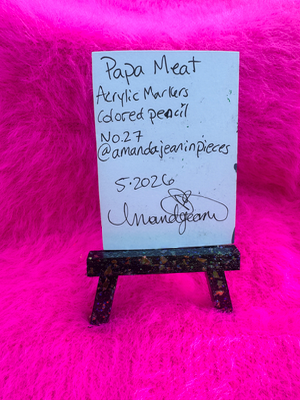 Papa Meat
Acrylic Markers
Colored pencil
No.27
@amandajeaninpieces
5.2026
Amandajean